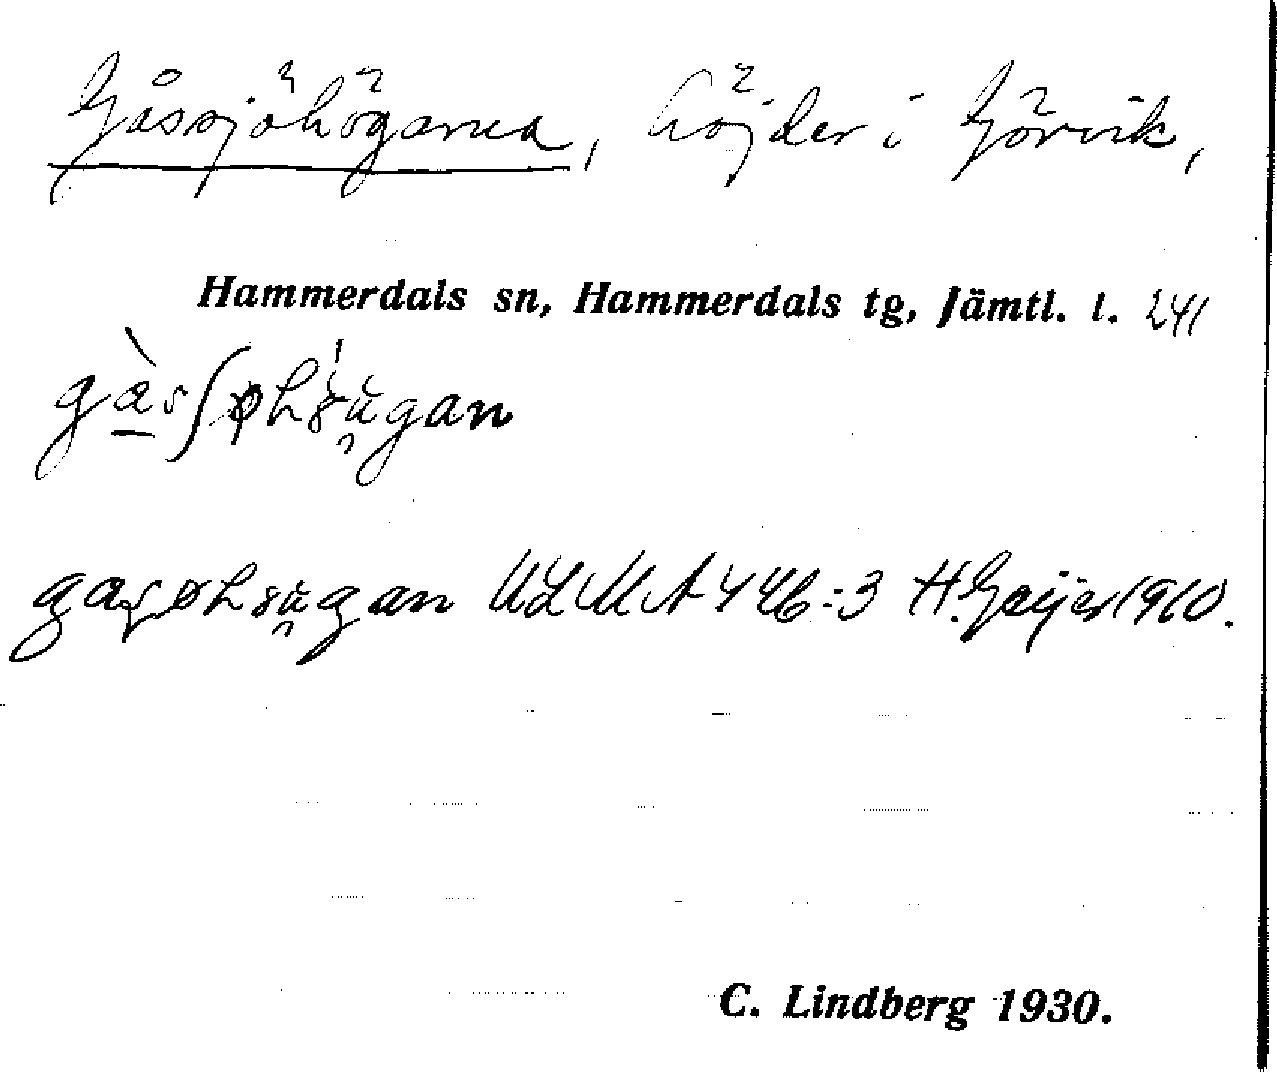 Gåssjöhögarna, höjder i Görvik,
Hammerdals sn, Hammerdals tg, Jämtl. l. 241
ULMA 446:3 H. Geijer 1910.
C. Lindberg 1930.